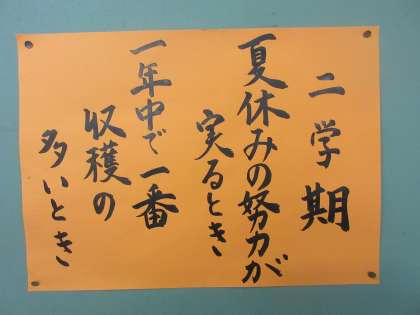 二学期
夏休みの努力が
実るとき
一年中で一番
収穫の
多いとき